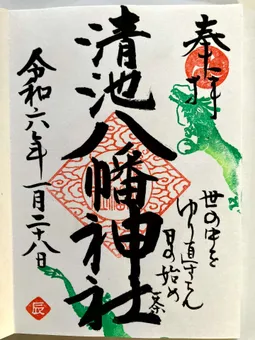 奉拝
世の中を
ゆり直すらん
日の始め
一茶
清池八幡神社
令和六年一月二十八日
辰